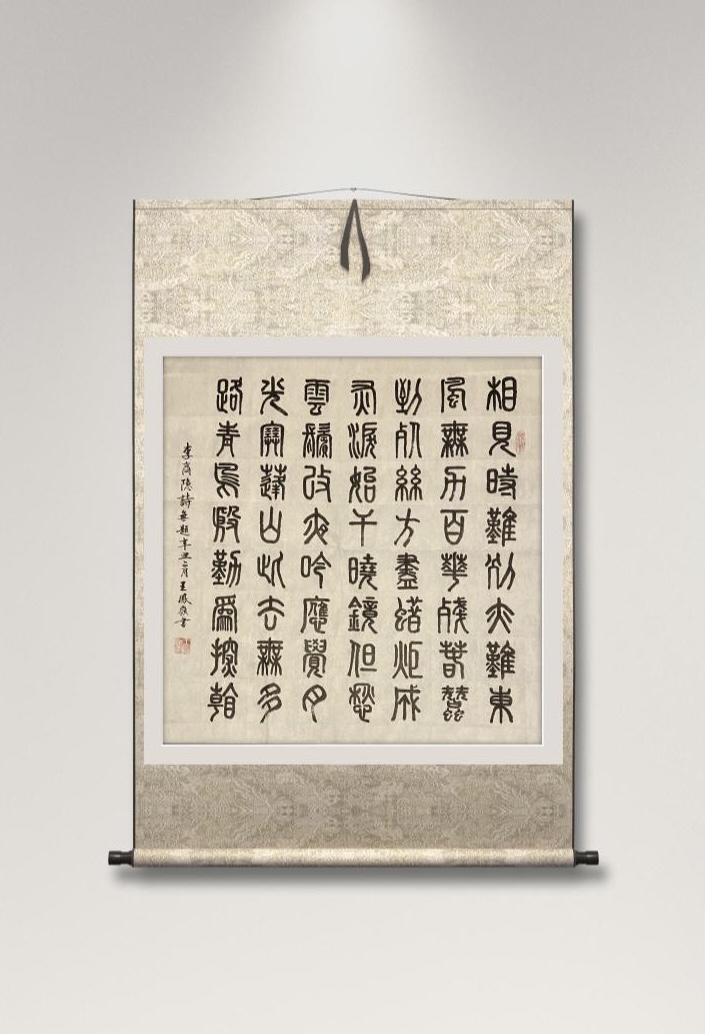 相見時難別亦難東
風無力百華殘春蠶
到死絲方盡蠟炬成
灰淚始干曉鏡但愁
雲鬢改夜吟應覺月
光寒蓬山此去無多
路青鳥殷勤爲探看
李商隱詩無題辛丑二月王鳳書